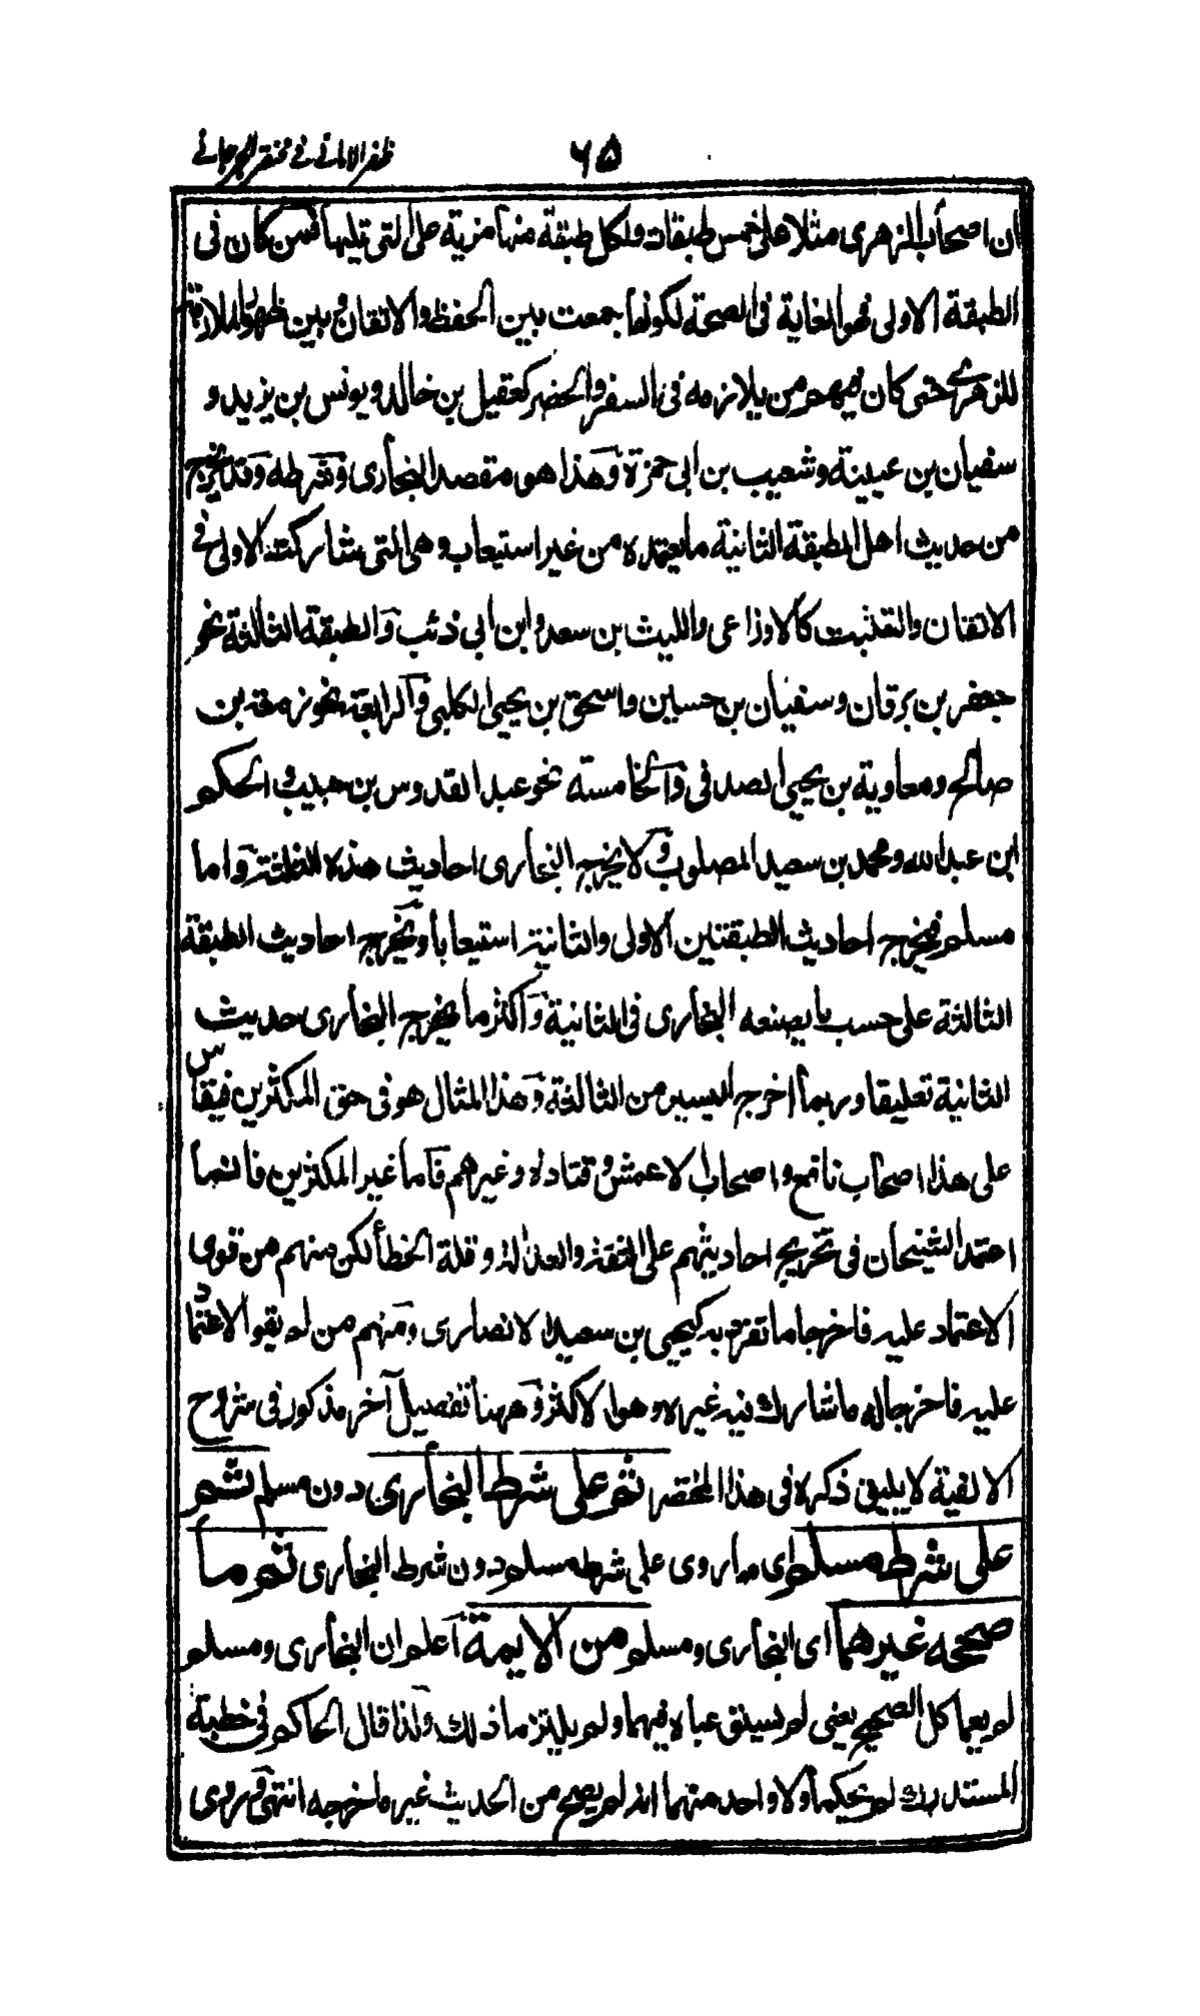 ظفر الامانی فی مختصر الجرجانی
٦٥
ان اصحاب الزهری مثلا علی خمس طبقات ولکل طبقة منها مزیة علی التی تلیها فمن کان فی
الطبقة الاولی فهو الغایة فی الصحة لکونها جمعت بین الحفظ والاتقان وبین طول الملازمة
للزهری حتی کان فیهم من یلازمه فی السفر والحضر کعقیل بن خالد ویونس بن یزید و
سفیان بن عیینة وشعیب بن ابی حمزة وهذا هو مقصد البخاری وشرطه وقد یخرج
من حدیث اهل الطبقة الثانیة ما یعتمده من غیر استیعاب وهی التی شارکت الاولی فی
الاتقان والتثبت کالاوزاعی واللیث بن سعد وابن ابی ذئب والطبقة الثالثة نحو
جعفر بن برقان وسفیان بن حسین واسحق بن یحیی الکلبی والرابعة نحو زمعة بن
صالح ومعاویة بن یحیی الصدفی والخامسة نحو عبد القدوس بن حبیب والحکم
ابن عبد الله ومحمد بن سعید المصلوب ولا یخرج البخاری احادیث هذه الثلثة واما
مسلم فیخرج احادیث الطبقتین الاولی والثانیة استیعابا ویخرج احادیث الطبقة
الثالثة علی حسب ما یصنعه البخاری فی الثانیة واکثر ما یخرج البخاری حدیث
الثانیة تعلیقا وربما اخرج الیسیر من الثالثة وهذا المثال هو فی حق المکثرین فیقاس
علی هذا اصحاب نافع واصحاب الاعمش وقتادة وغیرهم فاما غیر المکثرین فانما
اعتمد الشیخان فی تخریج احادیثهم علی الثقة والعدالة وقلة الخطأ لکن منهم من قوی
الاعتماد علیه فاخرجا ما تفرد به کیحیی بن سعید الانصاری ومنهم من لم یقو الاعتماد
علیه فاخرجا له ما شارک فیه غیره وهو الاکثر وههنا تفصیل آخر مذکور فی شروح
الالفیة لا یلیق ذکره فی هذا المختصر ثم علی شرط البخاری دون مسلم ثم
علی شرط مسلم ای ما روی علی شرط مسلم دون شرط البخاری ثم ما
صححه غیرهما ای البخاری ومسلم من الایمة اعلم ان البخاری ومسلم
لم یعما کل الصحیح یعنی لم یستوعباه فیهما ولم یلتزما ذلک ولذا قال الحاکم فی خطبة
المستدرک لم یحکما ولا واحد منهما انه لم یصح من الحدیث غیر ما اخرجه انتهی وروی